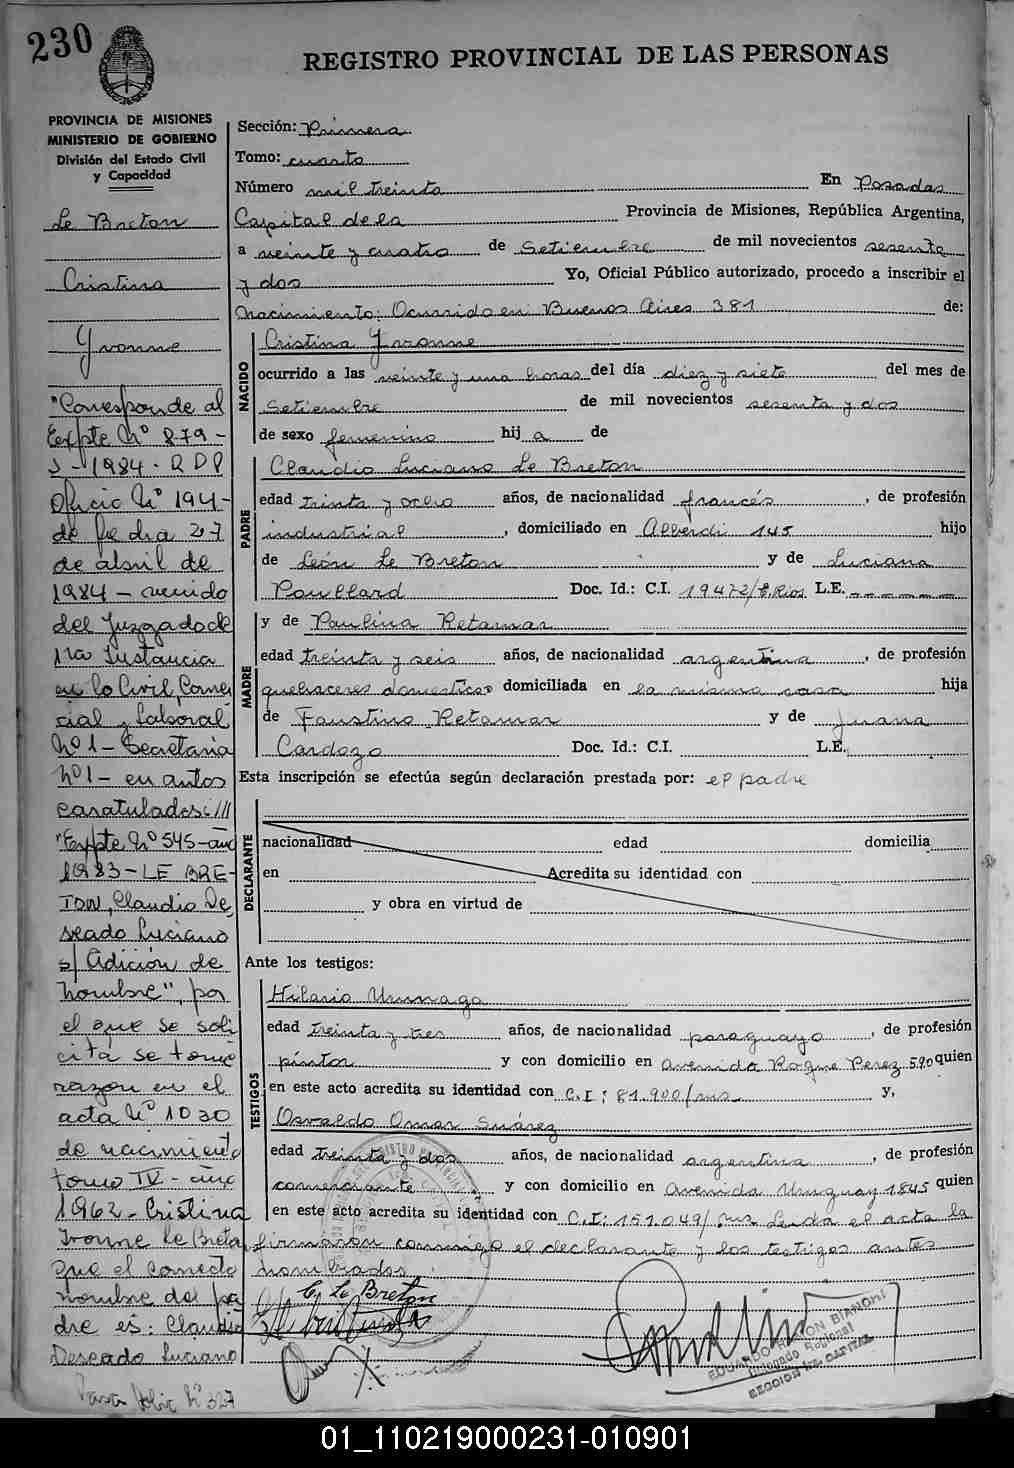 230
REGISTRO PROVINCIAL DE LAS PERSONAS
PROVINCIA DE MISIONES
MINISTERIO DE GOBIERNO
División del Estado Civil
y Capacidad
Le Breton
Cristina
Yvonne
"Corresponde al
Expte Nº 879-
J-1984- RDP
Oficio Nº 194-
de fecha 27
de abril de
1984 - venido
del Juzgado de
1ra Instancia
en lo Civil, Comer
cial y Laboral
Nº 1 - Secretaria
Nº 1 - en autos
caratulados: ///
"Expte Nº 545-año
1983 - LE BRE-
TON, Claudio De
seado Luciano
s/ Adición de
Nombre", por
el que se soli
cita se tome
razón en el
acta Nº 1030
de nacimiento
tomo IV - año
1962 - Cristina
Ivonne Le Breton
que el correcto
nombre del pa
dre es: Claudio
Deseado Luciano
Para Folio Nº 327
Sección: Primera
Tomo: cuarto
Número mil treinta En Posadas
Capital de la Provincia de Misiones, República Argentina,
a veinte y cuatro de Setiembre de mil novecientos sesenta
y dos Yo, Oficial Público autorizado, procedo a inscribir el
Nacimiento: Ocurrido en Buenos Aires 381 de:
NACIDO
Cristina Yvonne
ocurrido a las veinte y una horas del día diez y siete del mes de
Setiembre de mil novecientos sesenta y dos
de sexo femenino hij a de
PADRE
Claudio Luciano Le Breton
edad treinta y ocho años, de nacionalidad francés, de profesión
industrial, domiciliado en Alberdi 145 hijo
de León Le Breton y de Luciana
Pouillard Doc. Id.: C.I. 19472/E.Rios L.E.
y de Paulina Retamar
MADRE
edad treinta y seis años, de nacionalidad argentina, de profesión
quehaceres domesticos domiciliada en la misma casa hija
de Faustino Retamar y de Juana
Cardozo Doc. Id.: C.I. L.E.
Esta inscripción se efectúa según declaración prestada por: el padre
DECLARANTE
nacionalidad edad domicilia
en Acredita su identidad con
y obra en virtud de
Ante los testigos:
TESTIGOS
Hilario Urunaga
edad treinta y tres años, de nacionalidad paraguayo, de profesión
pintor y con domicilio en avenida Roque Perez 590 quien
en este acto acredita su identidad con C.I: 81.900/mis y,
Osvaldo Omar Suárez
edad treinta y dos años, de nacionalidad argentina, de profesión
comerciante y con domicilio en Avenida Uruguay 1845 quien
en este acto acredita su identidad con C.I: 151.049/mis Leida el acta la
firmaron conmigo el declarante y los testigos antes
nombrados
C. Le Breton
EDUARDO RAMON BIANCHI
Delegado Regional
SECCION 1ra. CAPITAL
01_110219000231-010901